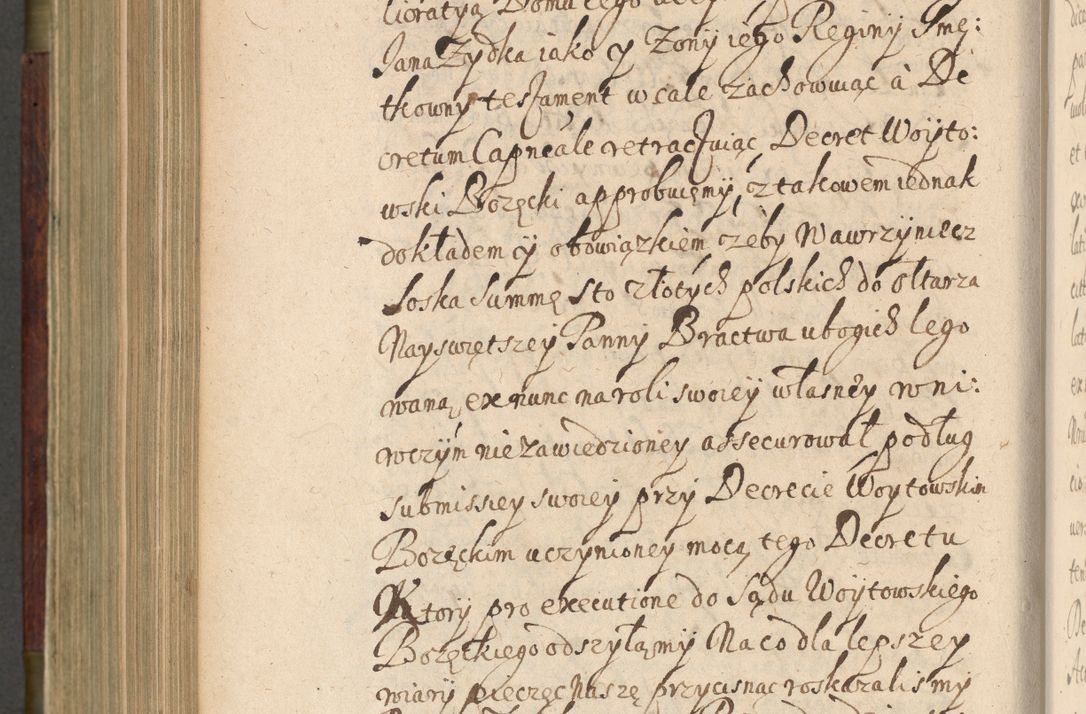 lioratyą Domu tego
Jana Zydka iako y Zony iego Reginy Smę:
tkowny testament wcale zachowuiąc à De
cretum Capneale retractuiąc Decret Woÿto:
wski Bozęcki approbuięmÿ, z takowem iednak
dokładem ÿ obowiązkiem czeby Wawrzyniecz
Soska Summę Sto złotych polskich do ołtarza
Nayswętszeÿ Panny Bractwa ubogich lego
waną, ex nunc na roli swoieÿ własneÿ w ni:
wczÿm nie zawiedzioney assecurował podług
submissiey swoieÿ przÿ Decrecie Woÿtowskim
Bozęckim uczynioney mocą tego Decretu
Ktorÿ pro executione do Sądu Woÿtowskiego
Bozęckiego odszyłamÿ Na co dla lepszeÿ
wiarÿ pieczęc Naszę przycisnąc roskazalismÿ